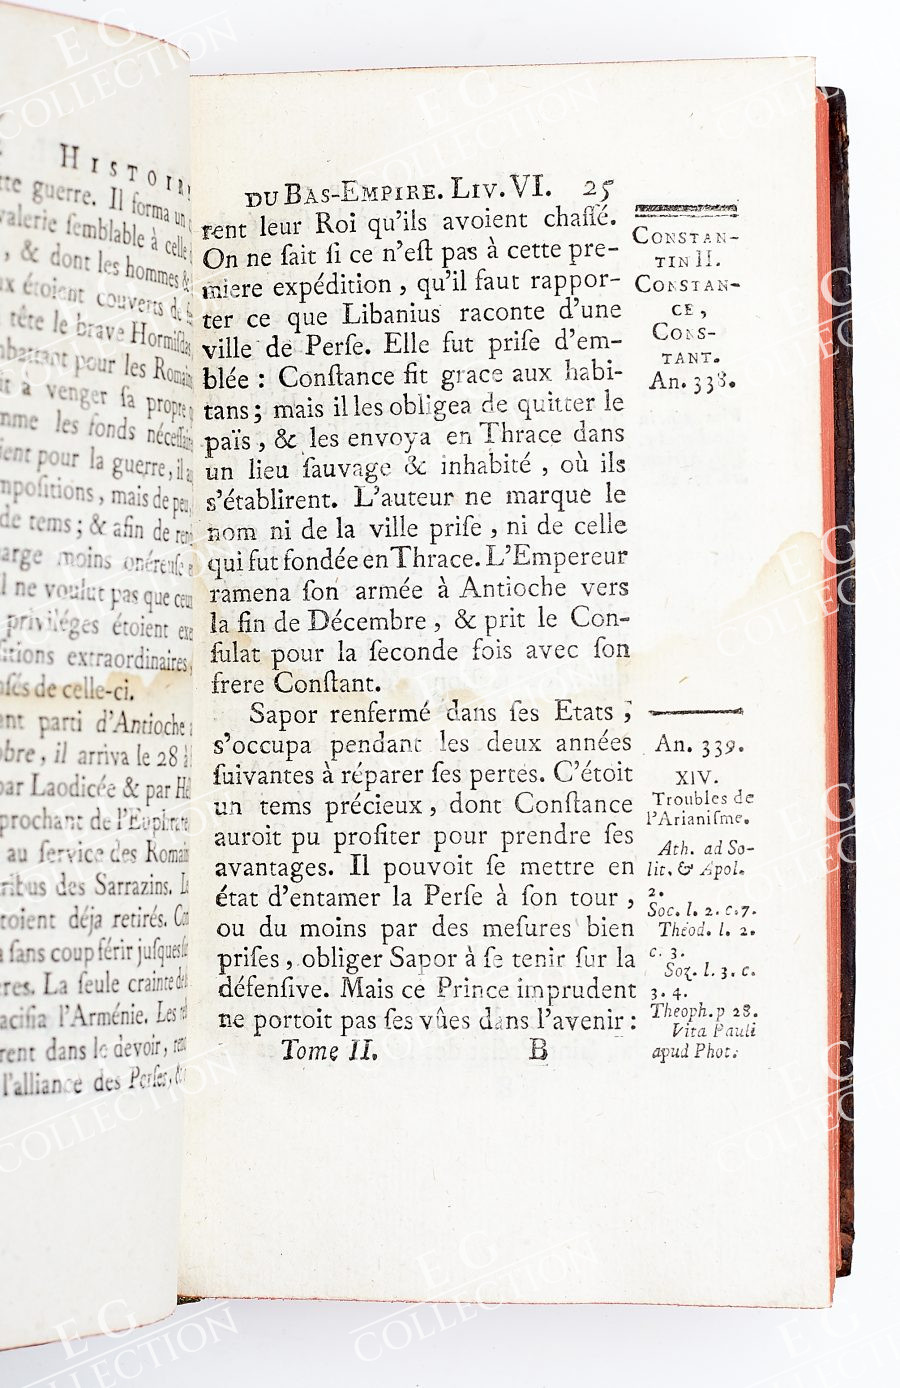 HISTOIR
tte guerre. Il forma un
valerie ſemblable à celle
, & dont les hommes &
x étoient couverts de
tête le brave Hormiſdas,
mbattant pour les Romains
it à venger ſa propre
mme les fonds néceſſaires
ient pour la guerre, il
mpoſitions, mais de peu
de tems; & afin de ren
arge moins onéreuſe
l ne voulut pas que ceux
privilèges étoient
ſitions extraordinaires,
ſés de celle-ci.
nt parti d'Antioche
bre, il arriva le 28
par Laodicée & par
prochant de l'Euphrate
au ſervice des Romains
ribus des Sarrazins.
toient déja retirés.
ſans coup férir juſques
res. La ſeule crainte de
acifia l'Arménie. Les
rent dans le devoir,
l'alliance des Perſes, &
DU BAS-EMPIRE. LIV. VI. 25
rent leur Roi qu'ils avoient chaſſé.
On ne ſait ſi ce n'eſt pas à cette pre-
miere expédition, qu'il faut rappor-
ter ce que Libanius raconte d'une
ville de Perſe. Elle fut priſe d'em-
blée : Conſtance fit grace aux habi-
tans; mais il les obligea de quitter le
païs, & les envoya en Thrace dans
un lieu ſauvage & inhabité, où ils
s'établirent. L'auteur ne marque le
nom ni de la ville priſe, ni de celle
qui fut fondée en Thrace. L'Empereur
ramena ſon armée à Antioche vers
la fin de Décembre, & prit le Con-
ſulat pour la ſeconde fois avec ſon
frere Conſtant.
Sapor renfermé dans ſes Etats,
s'occupa pendant les deux années
ſuivantes à réparer ſes pertes. C'étoit
un tems précieux, dont Conſtance
auroit pu profiter pour prendre ſes
avantages. Il pouvoit ſe mettre en
état d'entamer la Perſe à ſon tour,
ou du moins par des meſures bien
priſes, obliger Sapor à ſe tenir ſur la
défenſive. Mais ce Prince imprudent
ne portoit pas ſes vûes dans l'avenir :
Tome II. B
CONSTAN-
TIN II.
CONSTAN-
CE,
CONS-
TANT.
An. 338.
An. 339.
XIV.
Troubles de
l'Arianiſme.
Ath. ad So-
lit. & Apol.
2.
Soc. l. 2. c. 7.
Théod. l. 2.
c. 3.
Soz. l. 3. c.
3. 4.
Theoph. p 28.
Vita Pauli
apud Phot.
EG COLLECTION